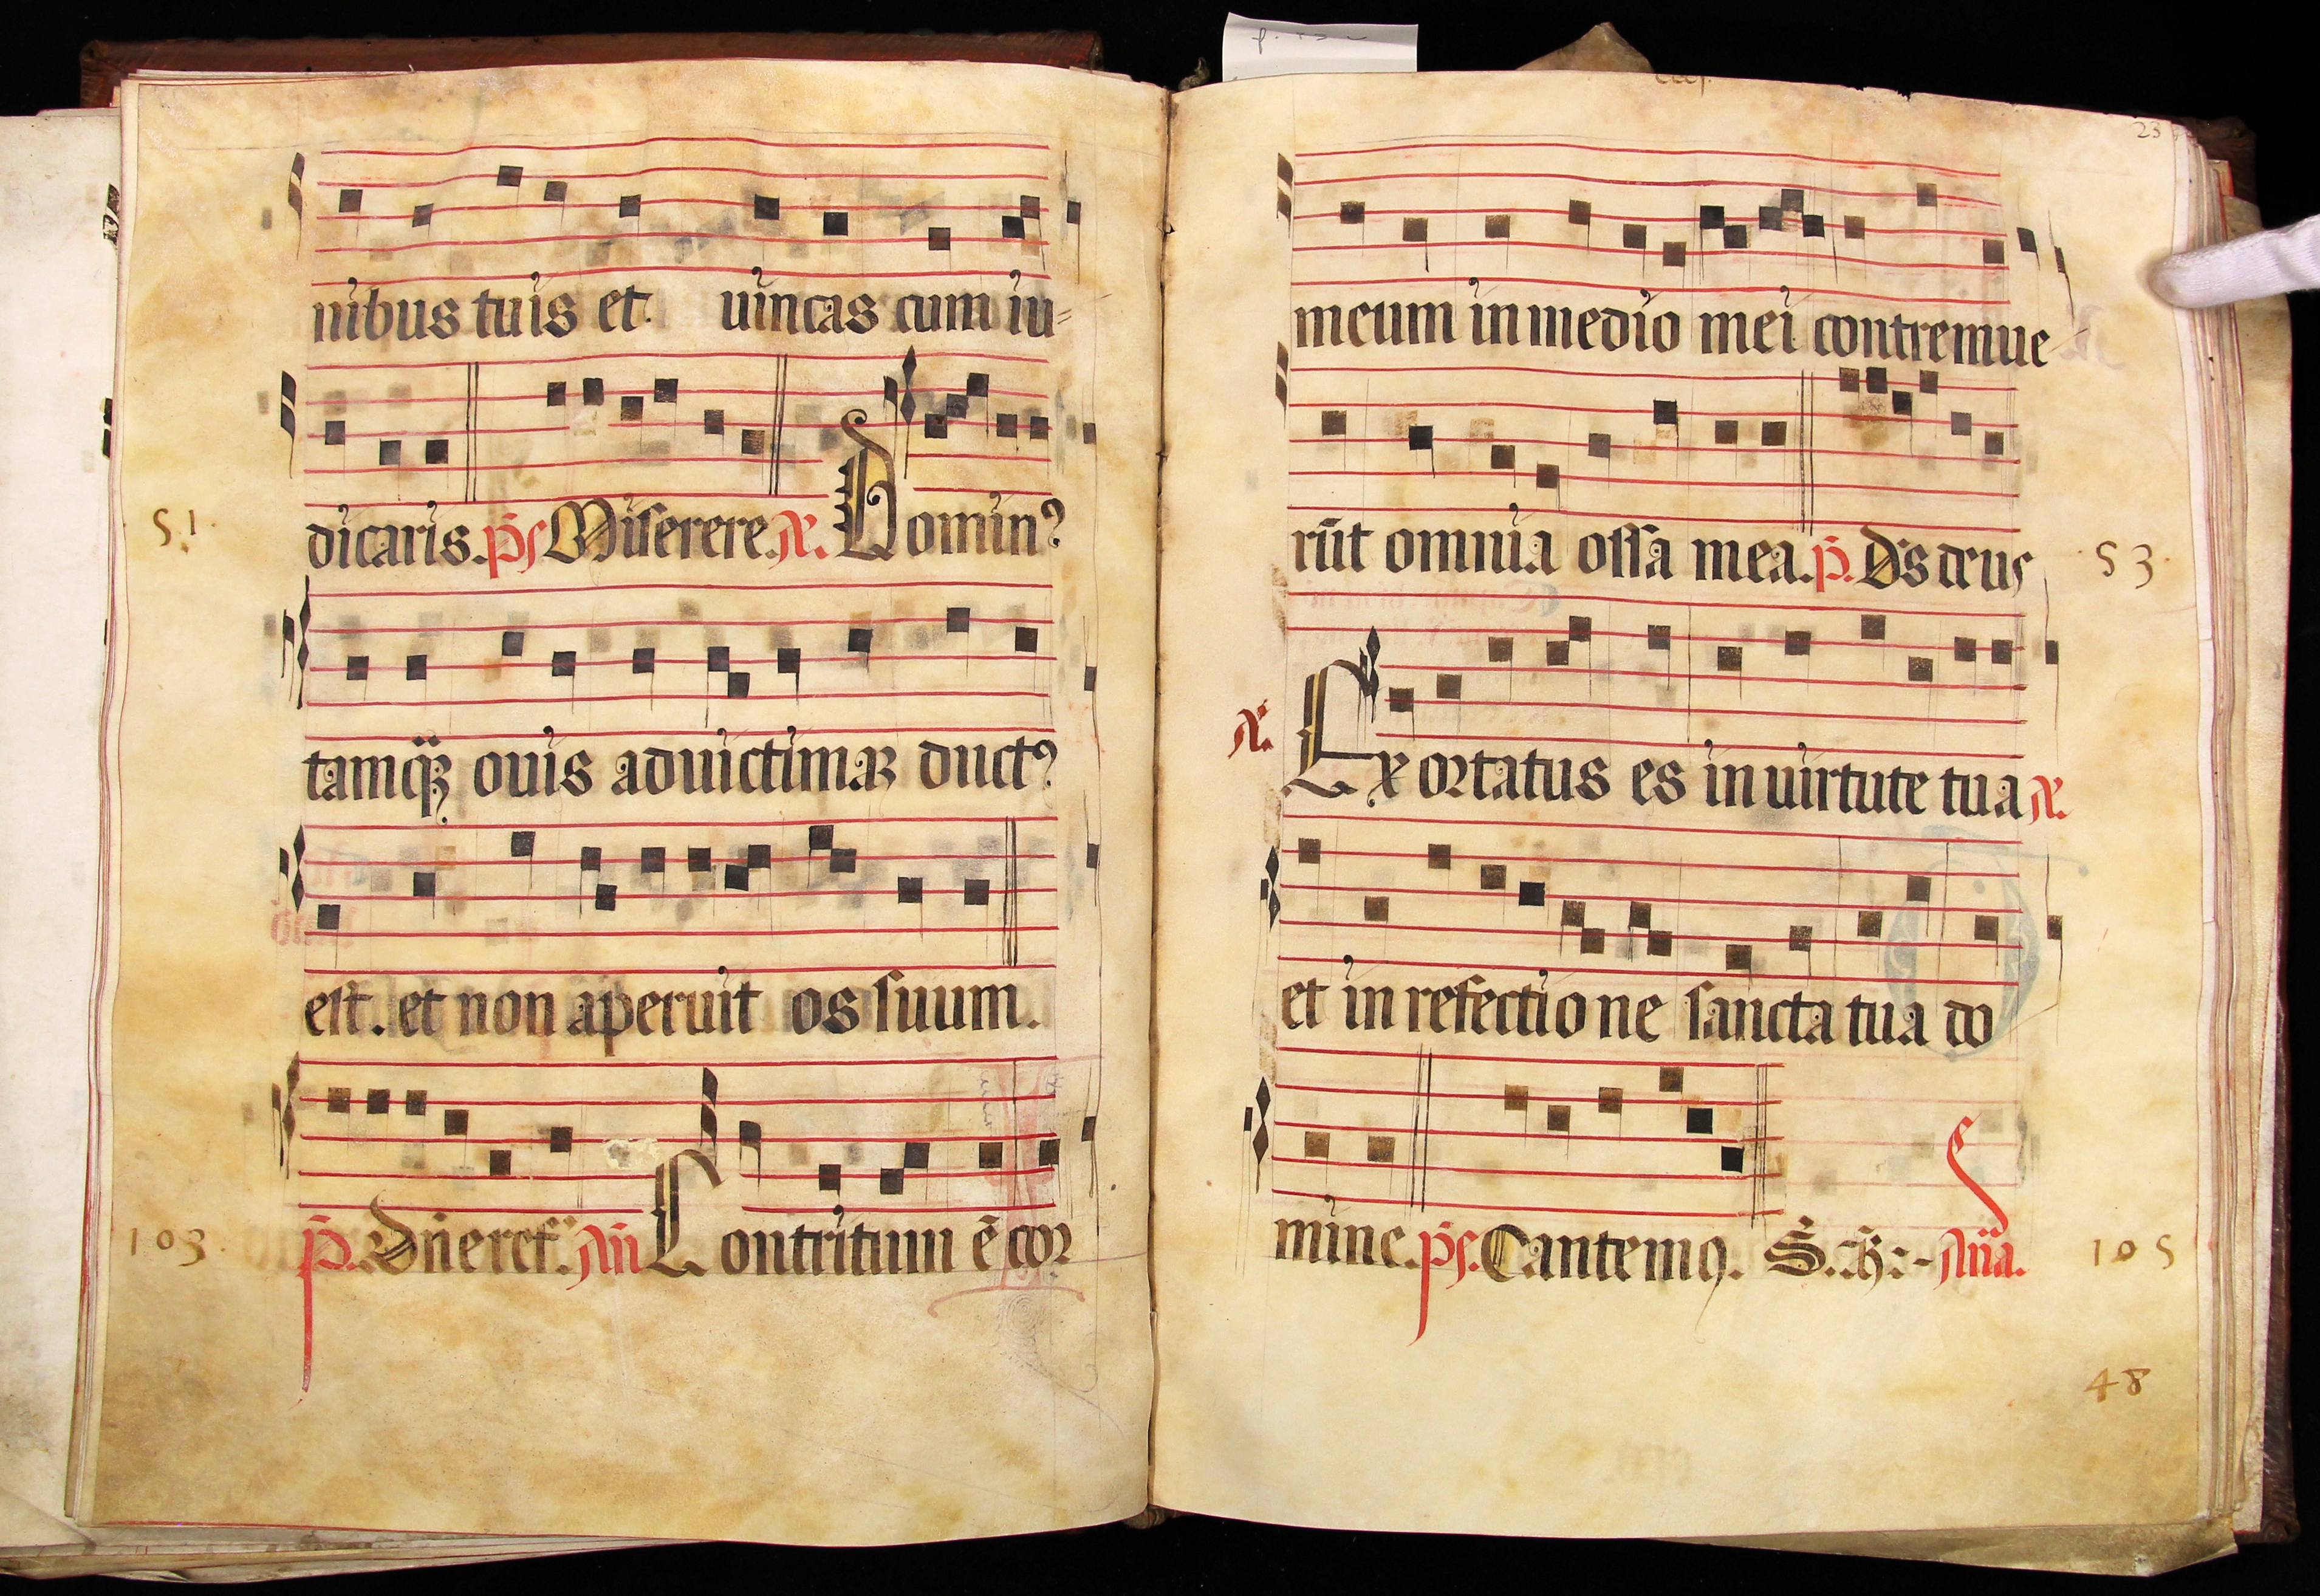 nibus tuis et uincas cum iu-
51.
dicaris. ps Miserere. Dominꝰ
tamqꝫ ouis ad uictimaꝫ ductꝰ
est. et non aperuit os suum.
103.
p̄. Dn̄e ref. An̄ Contritum ē cor
23
meum in medio mei contremue
rūt omnia ossa mea. p̄. Ds deus
53.
Exortatus es in uirtute tua
et in refectione sancta tua do
mine. ps. Cantemꝯ. An̄a.
105
48